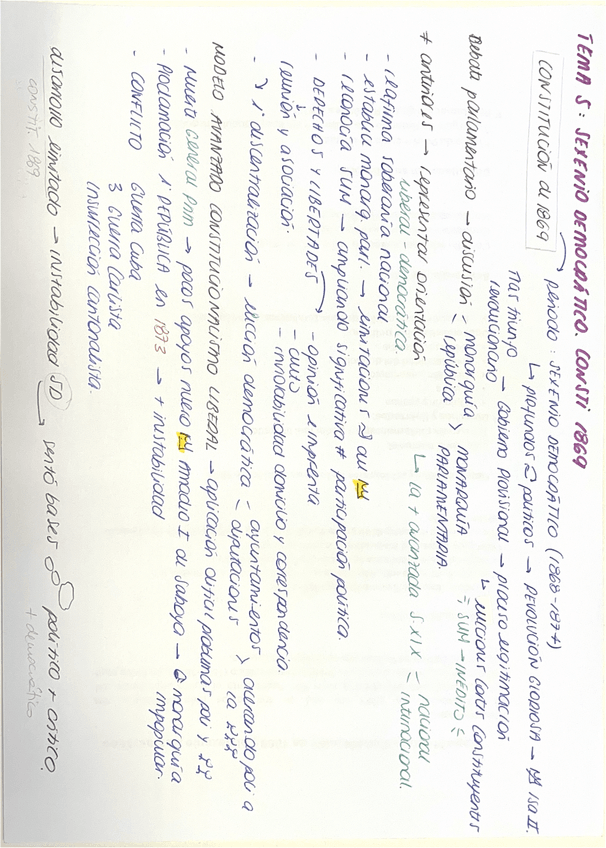 TEMA 5: SEXENIO DEMOCRÁTICO. CONSTI 1869
CONSTITUCIÓN de 1869
periodo: SEXENIO DEMOCRÁTICO (1868-1874)
↳ profundos políticos → REVOLUCIÓN GLORIOSA → Isa II.
Tras triunfo revolucionario → Gobierno Provisional → proceso legitimación
↳ elecciones Cortes Constituyentes
SUM → INÉDITO
Debate parlamentario → discusión < monarquía república > MONARQUÍA PARLAMENTARIA.
+ anteriores → representar orientación liberal-democrática
↳ la + avanzada S.XIX = nacional internacional.
- reafirma soberanía nacional
- establece monarq. parl. → limitaciones
- reconocía SUM → ampliando significativa + participación política.
- DERECHOS Y LIBERTADES
reunión y asociación.
- opinión e imprenta
- culto
- inviolabilidad domicilio y correspondencia.
- descentralización → elección democrática = ayuntamientos diputaciones > acercando pol. a la
MODELO AVANZADO CONSTITUCIONALISMO LIBERAL → aplicación difícil problemas pol y
- Muerte general Prim → pocos apoyos nuevo Amadeo I de Saboya → monarquía impopular.
- Proclamación 1ª REPÚBLICA en 1873 → + inestabilidad
- CONFLICTO
Guerra Cuba
3 Guerra Carlista
Insurrección cantonalista.
desarrollo limitado → inestabilidad SD
constit. 1869
sentó bases
político + crítico.
+ democrático